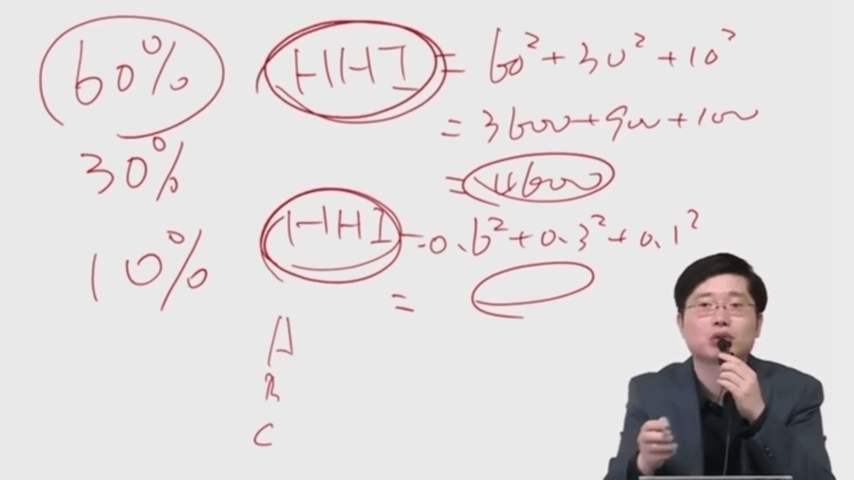 60% HHI = 60² + 30² + 10²
= 3600 + 900 + 100
30% = 4600
HHI = 0.6² + 0.3² + 0.1²
10% =
A
B
C